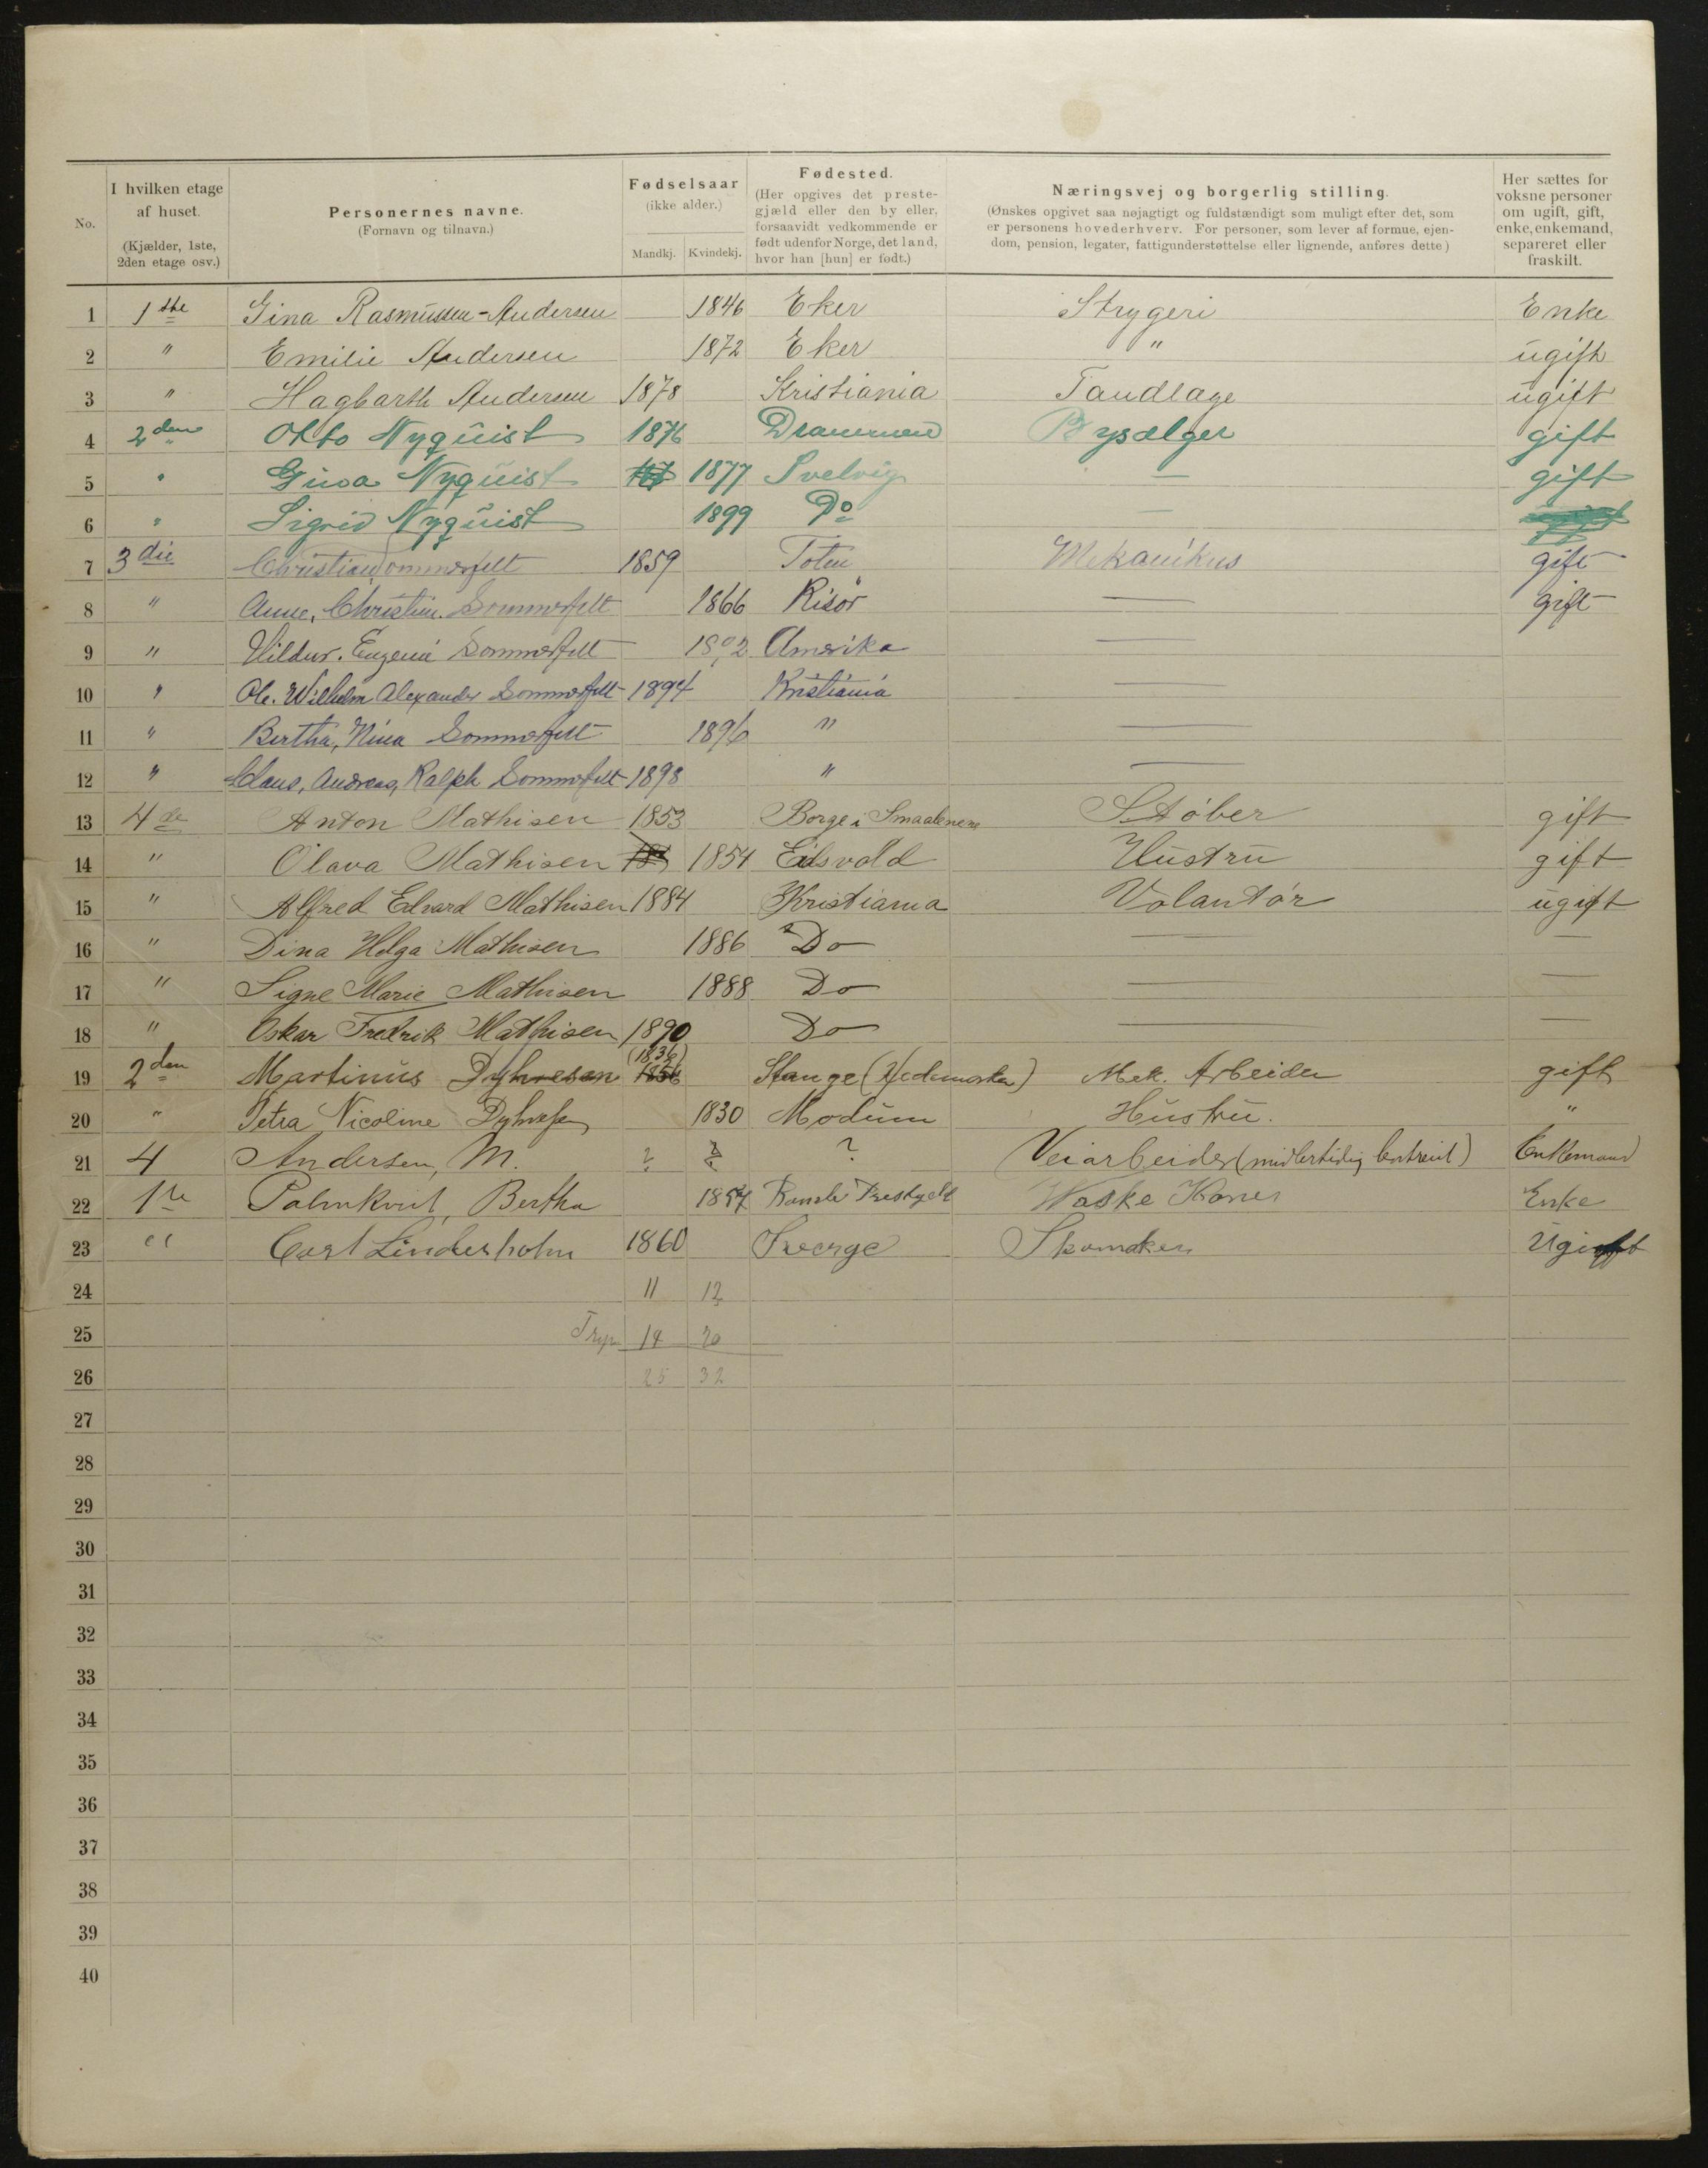 No.
I hvilken etage af huset.
(Kjælder, 1ste, 2den etage osv.)
Personernes navne.
(Fornavn og tilnavn.)
Fødselsaar
(ikke alder.)
Mandkj. Kvindekj.
Fødested.
(Her opgives det prestegjæld eller den by eller, forsaavidt vedkommende er født udenfor Norge, det land, hvor han [hun] er født.)
Næringsvej og borgerlig stilling.
(Ønskes opgivet saa nøjagtigt og fuldstændigt som muligt efter det, som er personens hovederhverv. For personer, som lever af formue, ejendom, pension, legater, fattigunderstøttelse eller lignende, anføres dette)
Her sættes for voksne personer om ugift, gift, enke, enkemand, separeret eller fraskilt.
1 1ste Gina Rasmussen-Andersen 1846 Eker Strygeri Enke
2 " Emilie Andersen 1872 Eker " ugift
3 " Hagbarth Andersen 1878 Kristiania Tandlæge ugift
4 2den Otto Nyquist 1876 Drammen gift
5 " Gina Nyquist 1877 Svelvig — gift
6 " Sigrid Nyquist 1899 Do —
7 3die Christian Sommerfelt 1859 Toten Mekanikus gift
8 " Anne, Christine. Sommerfelt 1866 Risør — gift
9 " Hildur. Eugenie Sommerfelt Amerika —
10 " Ole. Wilhelm Alexander Sommerfelt 1894 Kristiania —
11 " Bertha, Nina Sommerfelt 1896 " —
12 " Claus, Andreas, Ralph Sommerfelt 1898 " —
13 4de Anton Mathisen 1853 Borge i Smaalenene Støber gift
14 " Olava Mathisen 1854 Eidsvold Hustru gift
15 " Alfred Edvard Mathisen 1884 Kristiania Volantør ugift
16 " Dina Helga Mathisen 1886 Do — —
17 " Signe Marie Mathisen 1888 Do — —
18 " Oskar Fredrik Mathisen 1890 Do — —
19 2den Martinus Dyhresen (1836) 1856 Stange (Hedemarken) Mek. Arbeider gift
20 " Petra Nicoline Dyhresen 1830 Modum Hustru. "
21 4 Andersen, M. ? ? ? Veiarbeider (midlertidig Enkemand
22 1ste Palmkvist, Bertha 1857 Vaske Kone Enke
23 " Carl Linderholm 1860 Sverge Skomaker Ugift
24 11 12
25 14 20
26 25 32
27
28
29
30
31
32
33
34
35
36
37
38
39
40